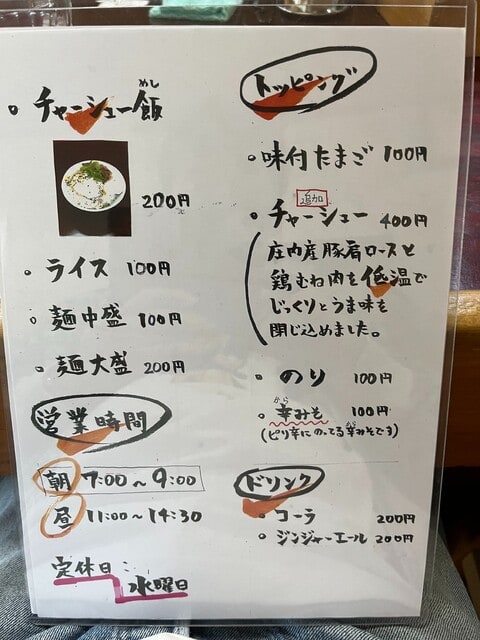 めし
・チャーシュー飯
200円
・ライス 100円
・麺中盛 100円
・麺大盛 200円
営業時間
朝 7:00〜9:00
昼 11:00〜14:30
定休日:
水曜日
トッピング
・味付たまご 100円
追加
・チャーシュー 400円
庄内産豚肩ロースと
鶏むね肉を低温で
じっくりとうま味を
閉じ込めました。
・のり 100円
から
・辛みそ 100円
(ピリ辛にのってる辛みそです)
ドリンク
・コーラ 200円
・ジンジャーエール 200円